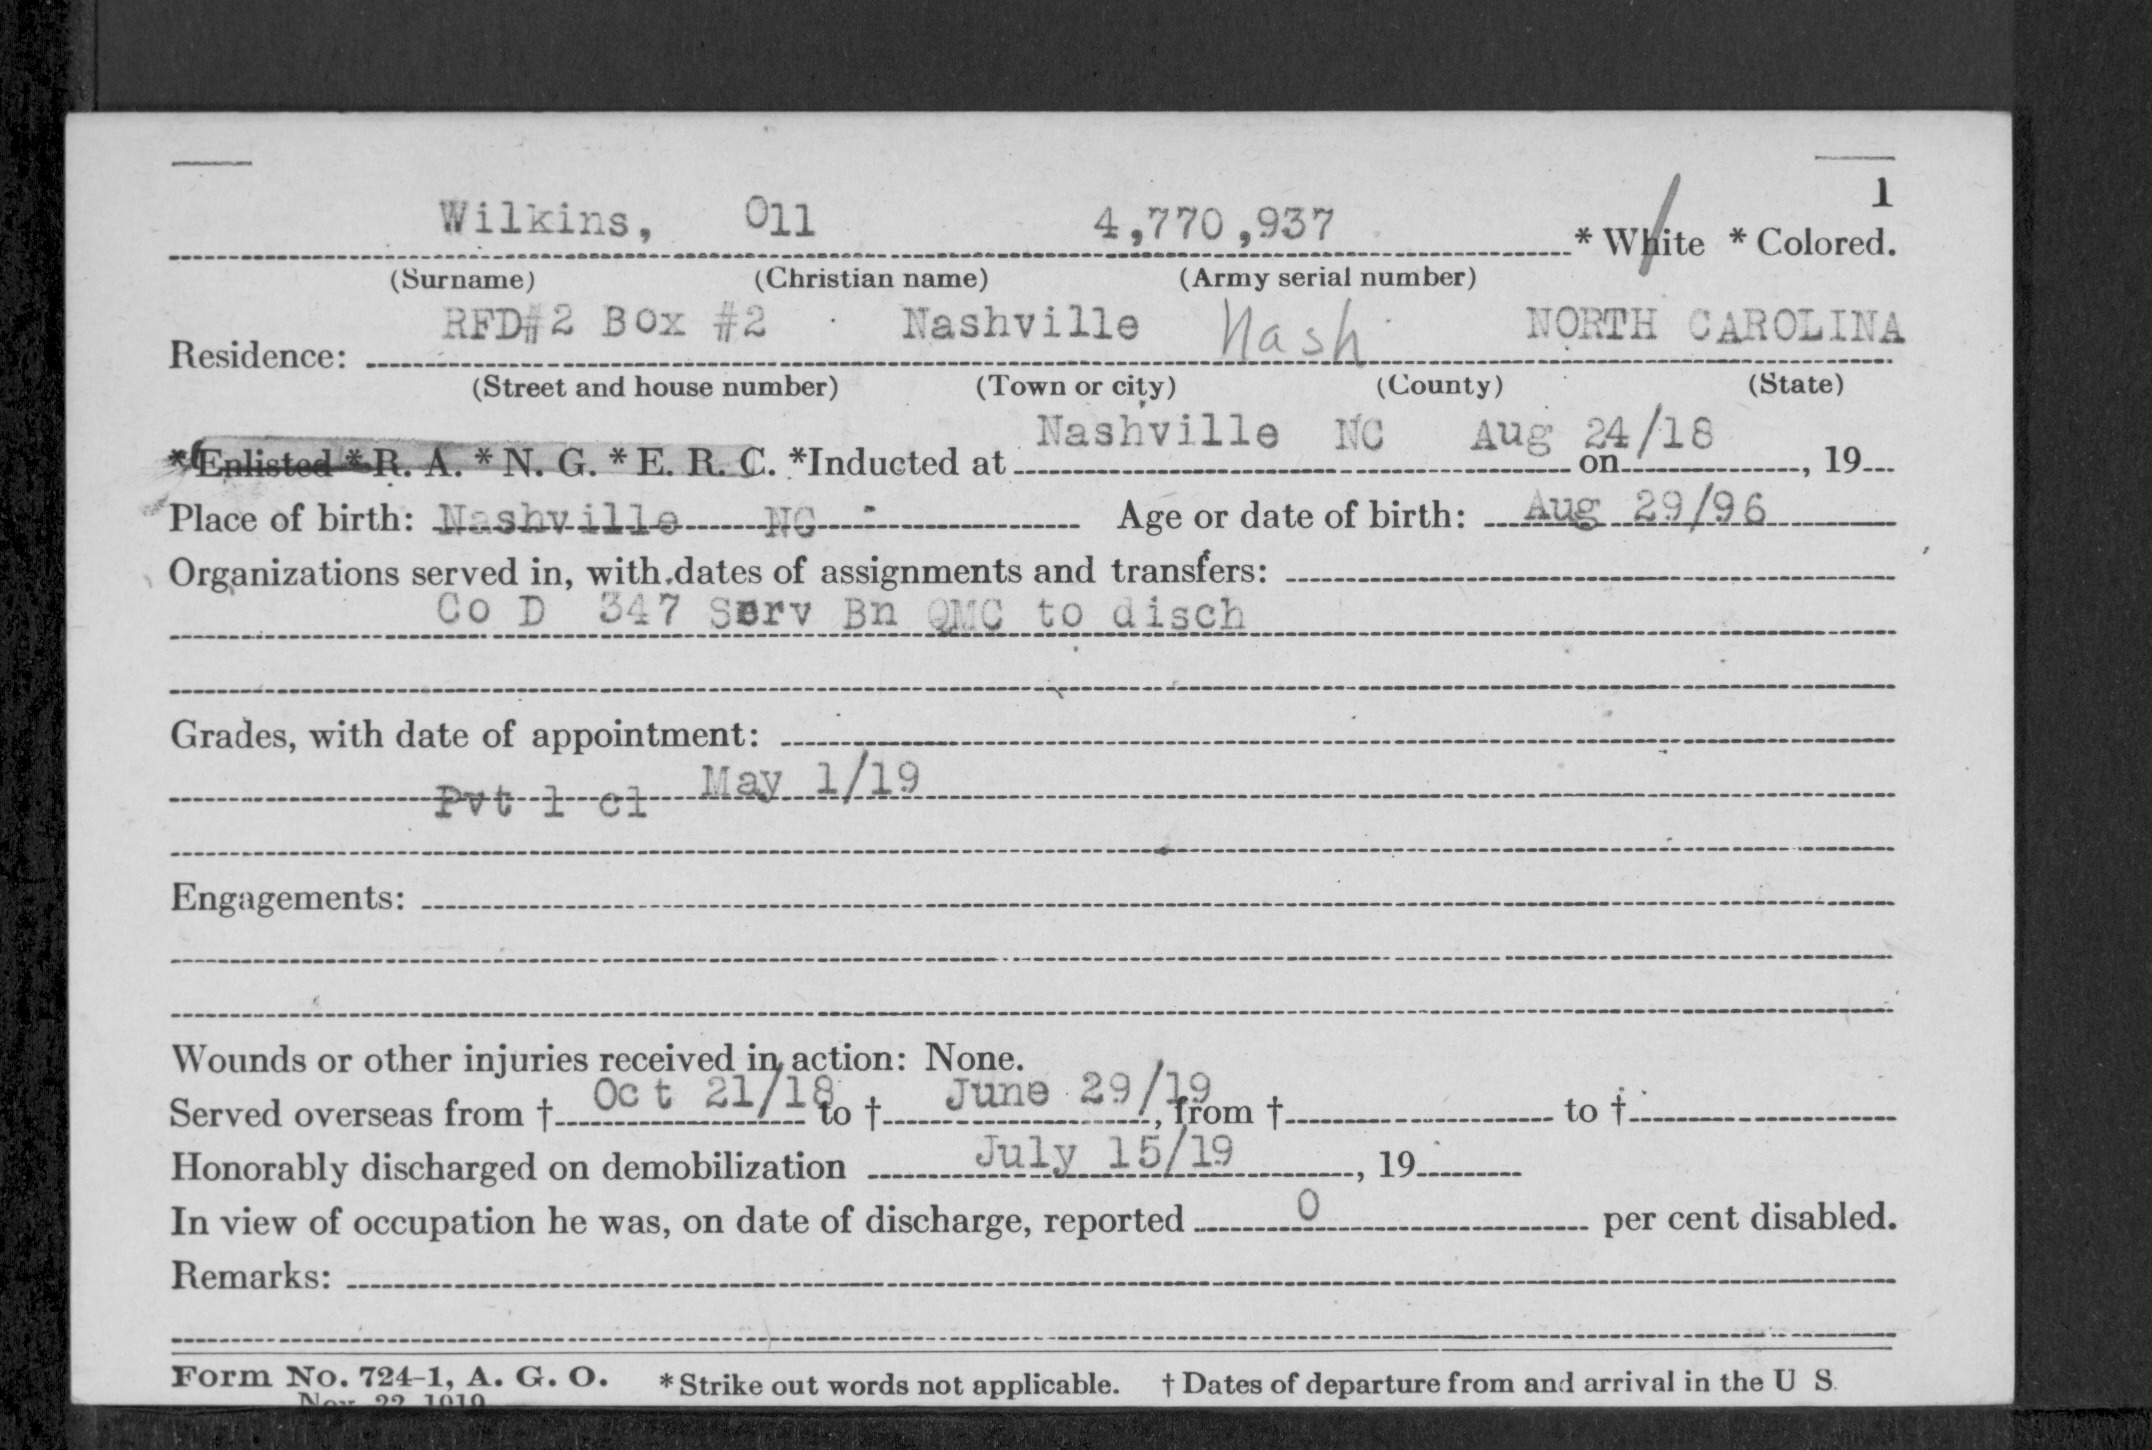 1
Wilkins, Oll 4,770,937 * White * Colored.
(Surname) (Christian name) (Army serial number)
RFD#2 Box #2 Nashville Nash NORTH CAROLINA
Residence:
(Street and house number) (Town or city) (County) (State)
Nashville NC Aug 24/18
*Enlisted *R. A. *N. G. *E. R. C. *Inducted at on , 19
Place of birth: Nashville NC - Age or date of birth: Aug 29/96
Organizations served in, with dates of assignments and transfers:
Co D 347 Serv Bn QMC to disch
Grades, with date of appointment:
Pvt 1 cl May 1/19
Engagements:
Wounds or other injuries received in action: None.
Served overseas from † Oct 21/18 to † June 29/19, from † to †
Honorably discharged on demobilization July 15/19, 19
In view of occupation he was, on date of discharge, reported 0 per cent disabled.
Remarks:
Form No. 724-1, A. G. O. *Strike out words not applicable. † Dates of departure from and arrival in the U S.
Nov. 22 1919